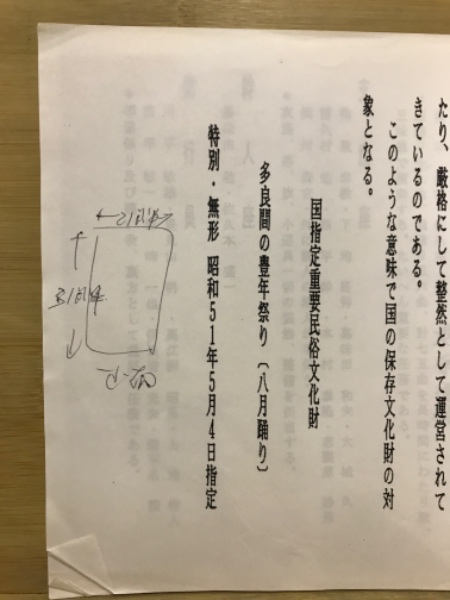 たり、厳格にして整然として運営されて
きているのである。
このような意味で国の保存文化財の対
象となる。
国指定重要民俗文化財
多良間の豊年祭り〔八月踊り〕
特別・無形 昭和51年5月4日指定